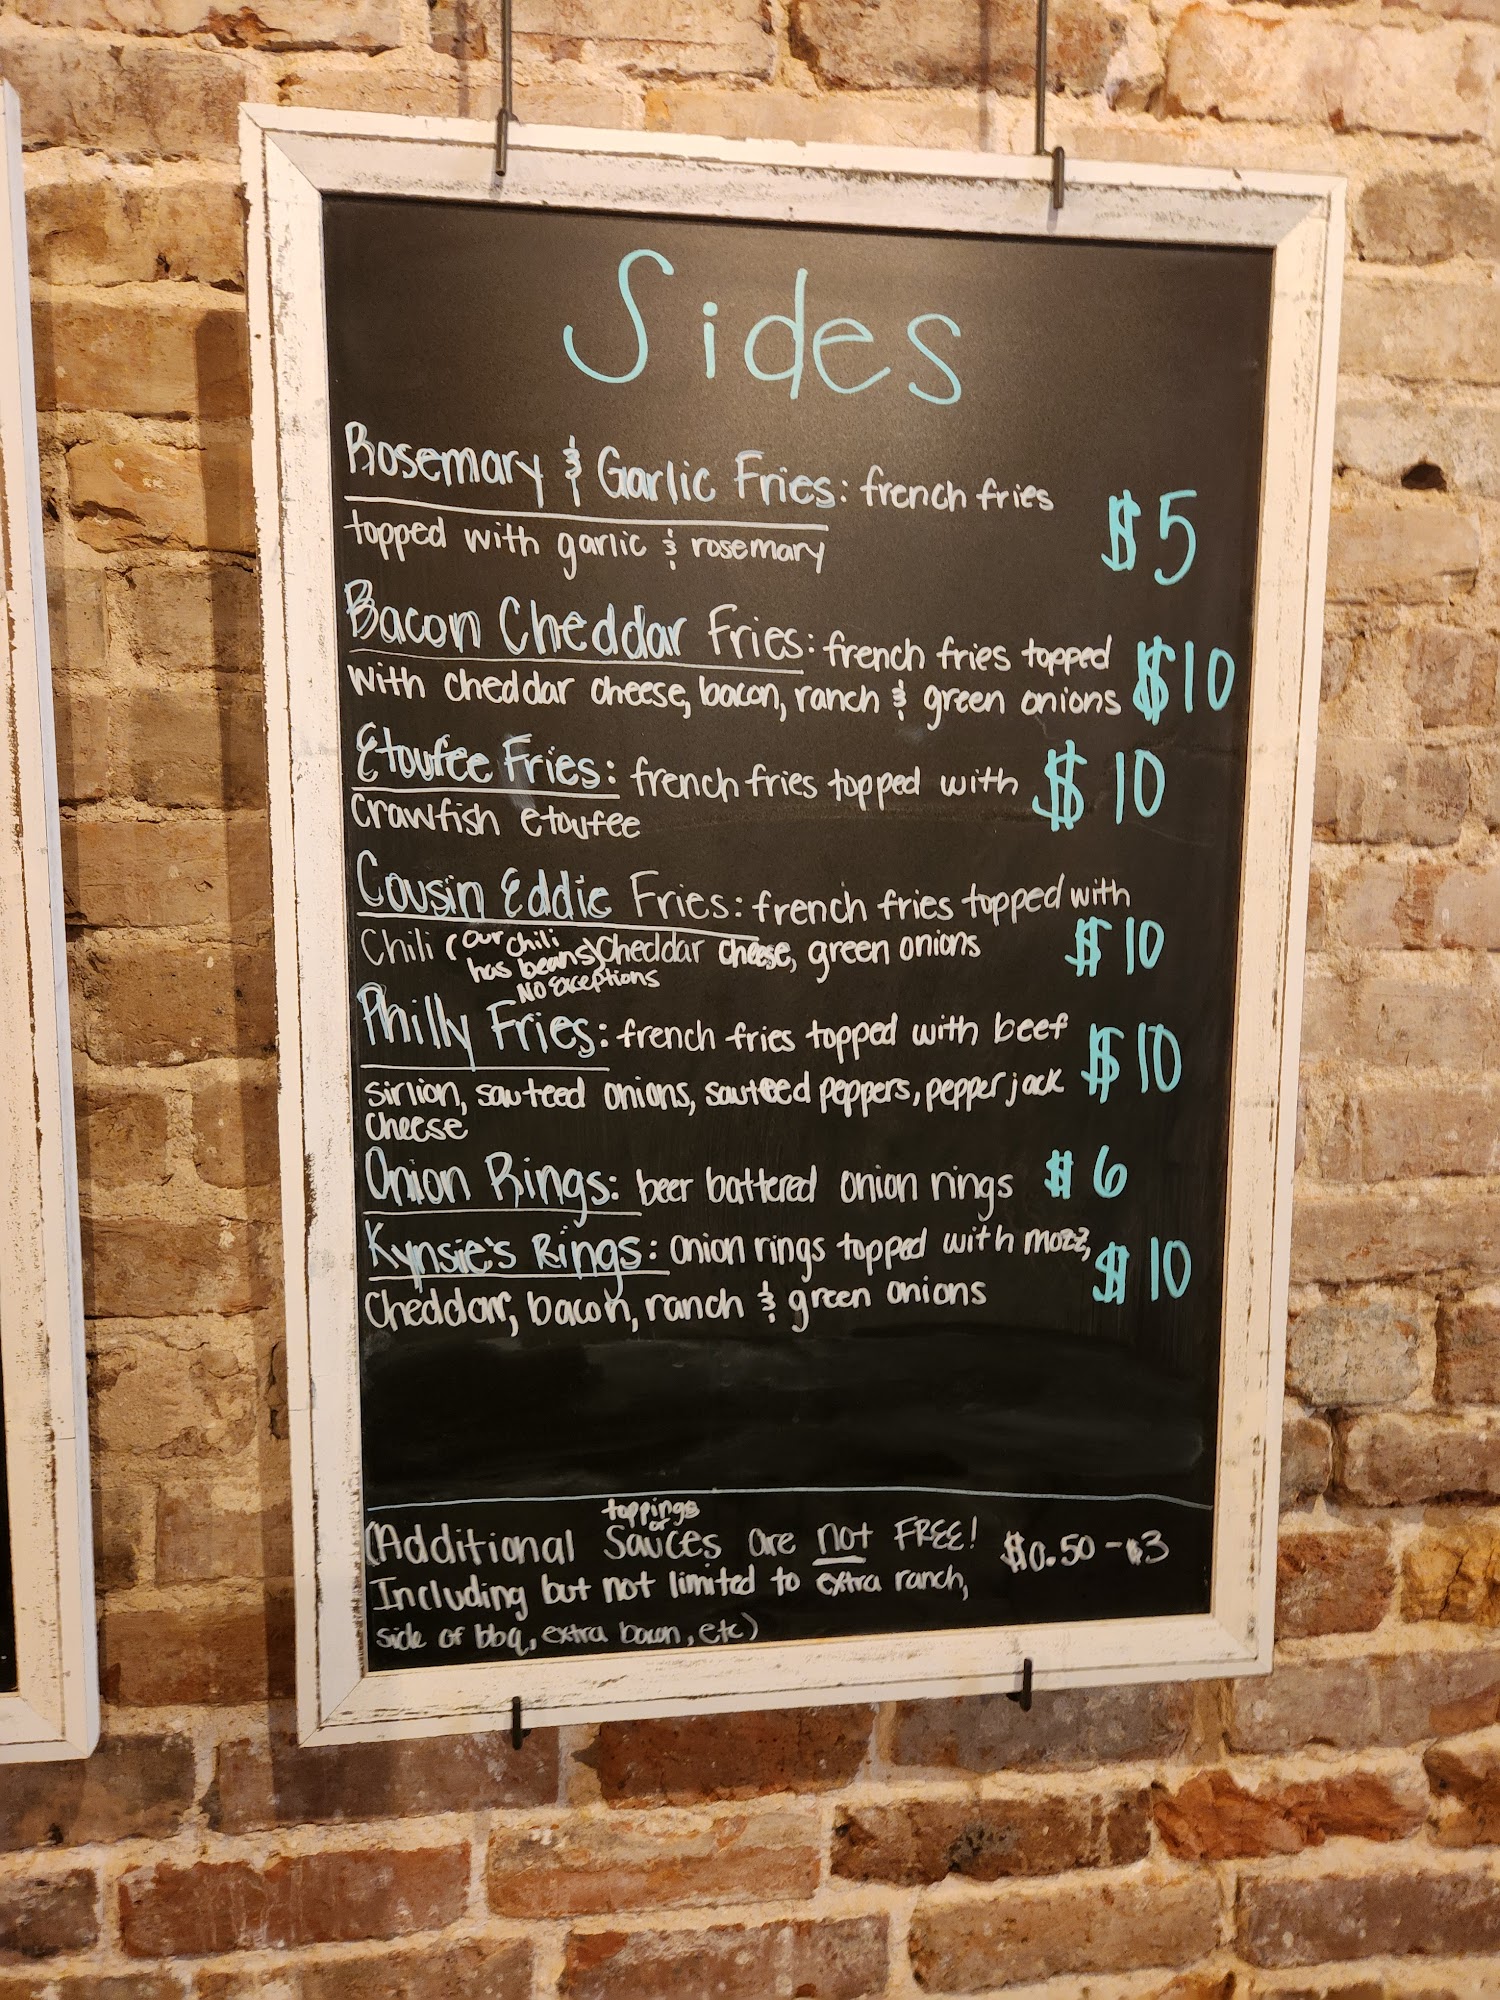 Sides
Rosemary & Garlic Fries: french fries $5
topped with garlic & rosemary
Bacon Cheddar Fries: french fries topped $10
with cheddar cheese, bacon, ranch & green onions
Etoufee Fries: french fries topped with $10
crawfish etoufee
Cousin Eddie Fries: french fries topped with
Chili (our chili has beans) cheddar cheese, green onions $10
NO Exceptions
Philly Fries: french fries topped with beef $10
sirlion, sauteed onions, sauteed peppers, pepper jack
cheese
Onion Rings: beer battered onion rings $6
Kynsie's Rings: onion rings topped with mozz, $10
Cheddar, bacon, ranch & green onions
toppings
or
(Additional Sauces are not FREE! $0.50 - $3
Including but not limited to extra ranch,
side of bbq, extra bacon, etc)